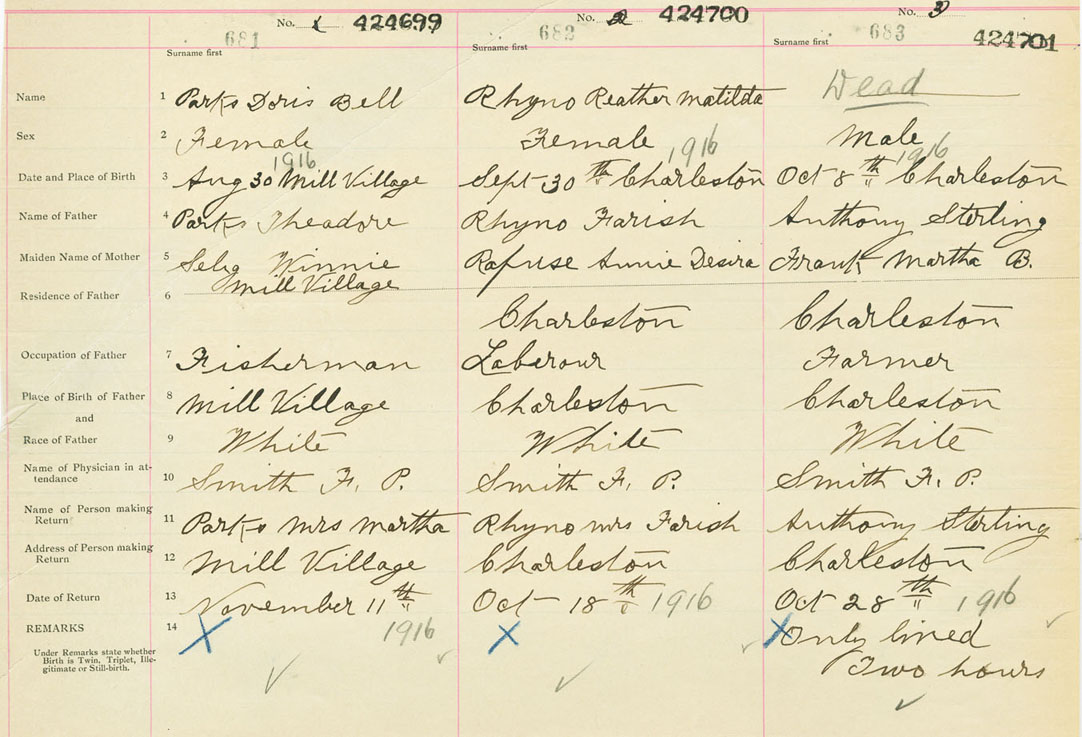 No. 1 424699 No. 2 424700 No. 3
681 682 683 424701
Surname first Surname first Surname first
Name 1 Parks Doris Bell Rhyno Reather Matilda Dead
Sex 2 Female Female Male
1916 1916 1916
Date and Place of Birth 3 Aug 30 Mill Village Sept 30th Charleston Oct 8th Charleston
Name of Father 4 Parks Theadore Rhyno Farish Anthony Sterling
Maiden Name of Mother 5 Selig Winnie Rafuse Annie Desira Frank Martha B.
Mill Village
Residence of Father 6 Charleston Charleston
Occupation of Father 7 Fisherman Labarour Farmer
Place of Birth of Father 8 Mill Village Charleston Charleston
and
Race of Father 9 White White White
Name of Physician in at-
tendance 10 Smith F. P. Smith F. P. Smith F. P.
Name of Person making
Return 11 Parks Mrs Martha Rhyno Mrs Farish Anthony Sterling
Address of Person making
Return 12 Mill Village Charleston Charleston
Date of Return 13 November 11th Oct 18th 1916 Oct 28th 1916
REMARKS 14 X 1916 X X Only lived
Under Remarks state whether
Birth is Twin, Triplet, Ille-
gitimate or Still-birth.
Two hours